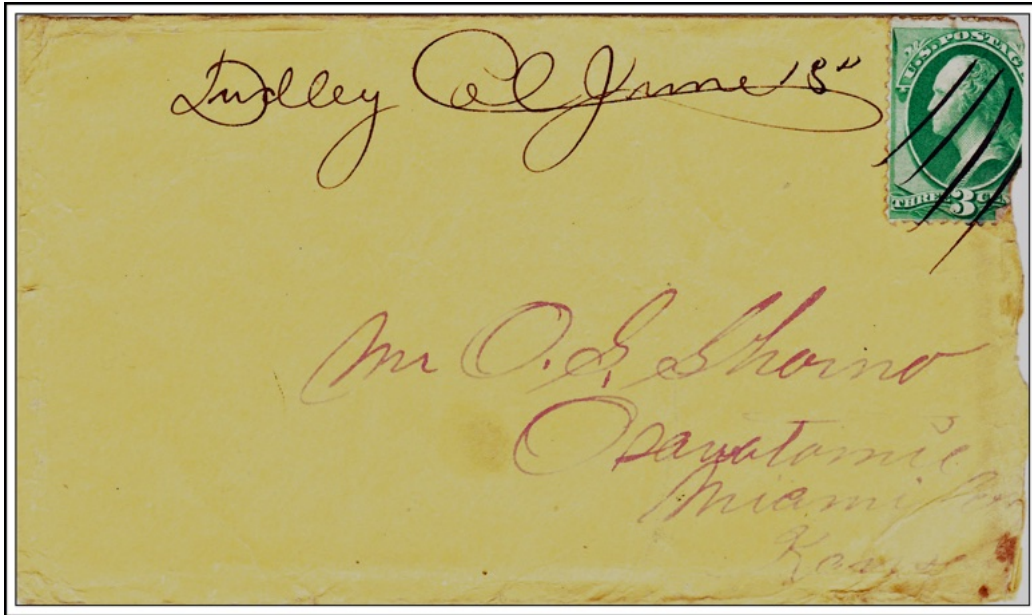 Dudley Col June 18"
U.S. POSTAGE
THREE 3 CE
Mr O. S. Thorno
Osawatomie
Miami
Kansas